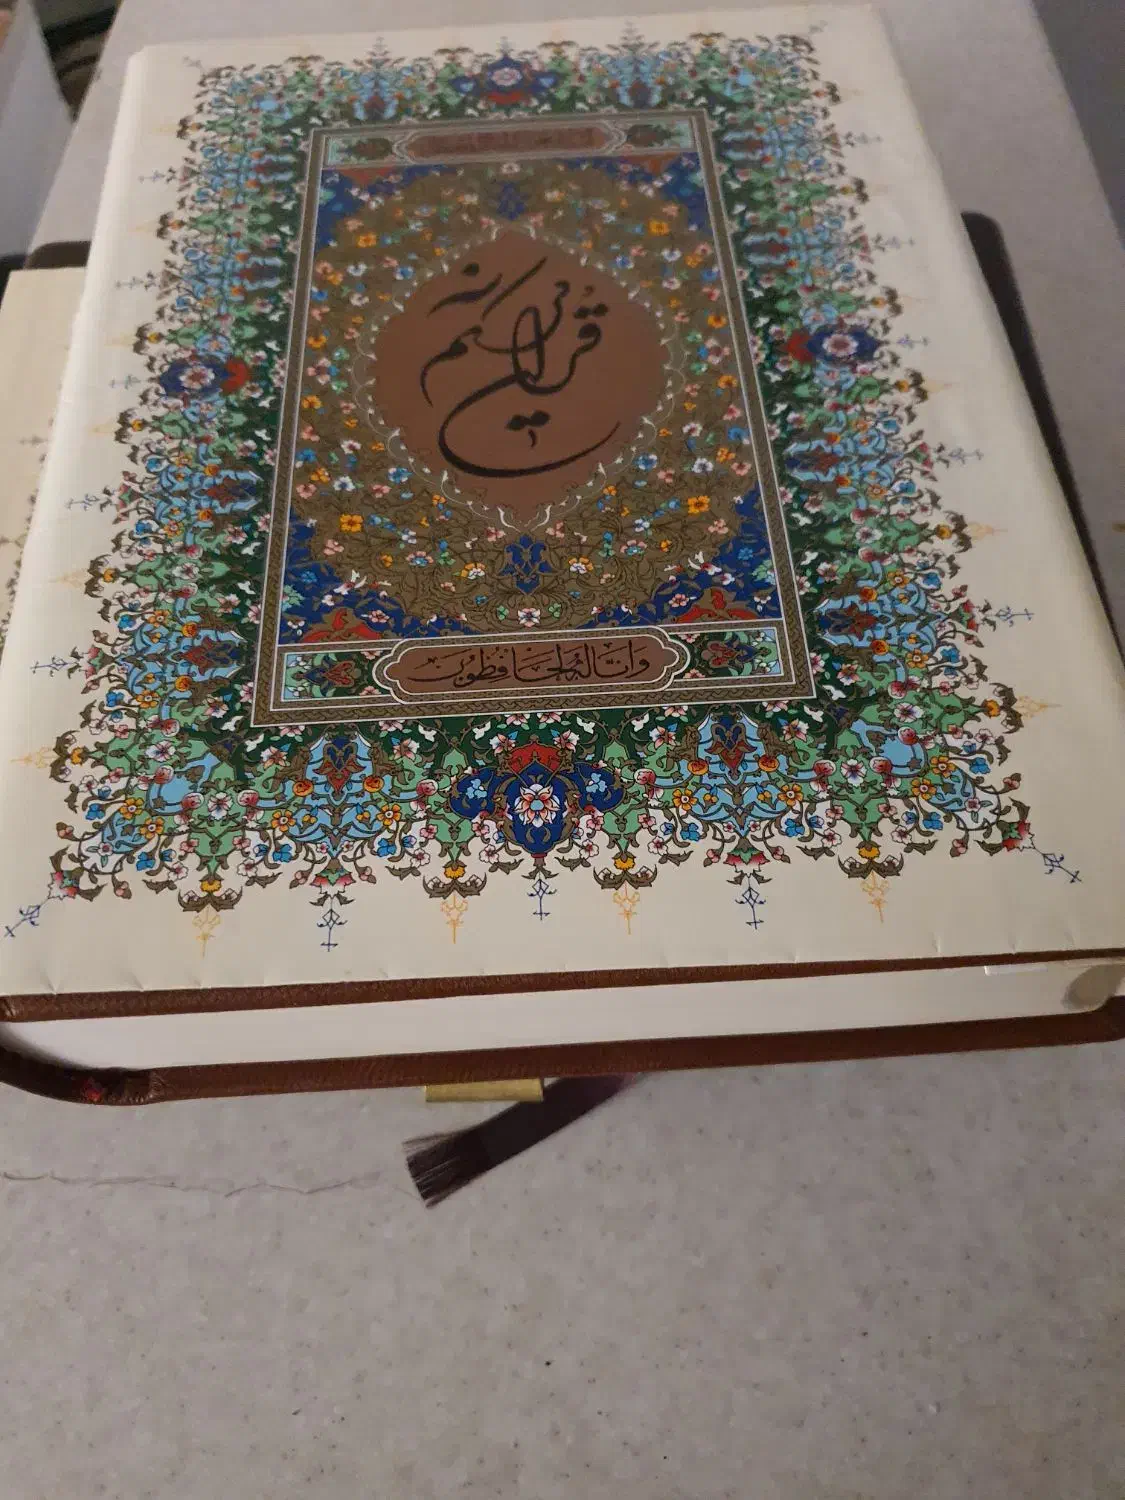 قرآن کریم
وانا له لحافظون